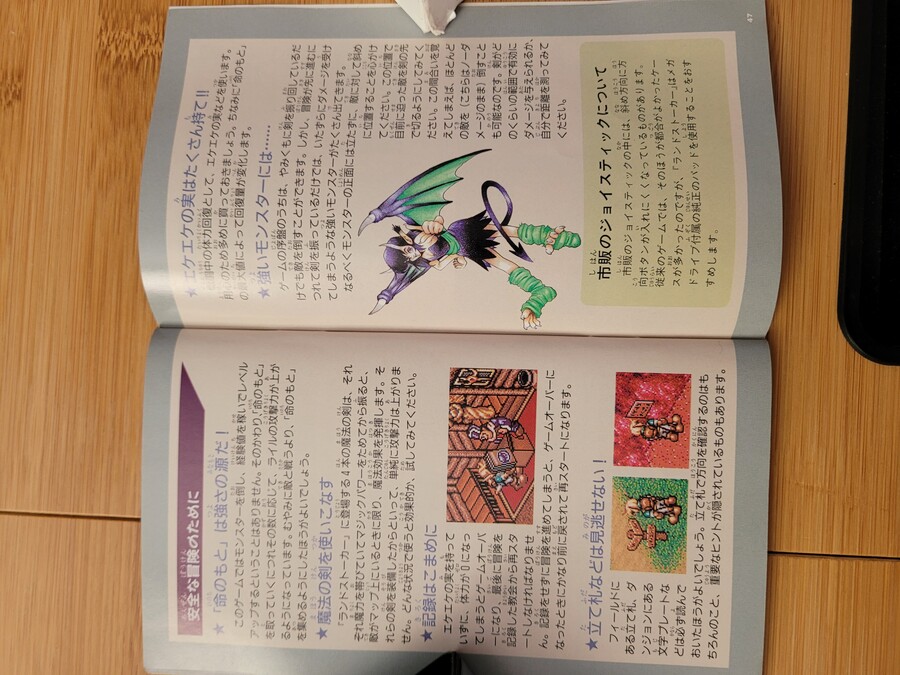 安全な冒険のために
★「命のもと」は強さの源だ！
このゲームではモンスターを倒し、経験値を稼いでレベル
アップするということはありません。そのかわり「命のもと」
を取っていくにつれその数に応じて、ライルの攻撃力が上が
るようになっています。むやみに敵と戦うより、「命のもと」
を集めるようにしたほうがよいでしょう。
★魔法の剣を使いこなす
「ランドストーカー」に登場する4本の魔法の剣は、それ
ぞれ魔力を帯びていてマジックパワーをためてから振ると、
敵がマップ上にいるときに限り、魔法効果を発揮します。そ
れらの剣を装備したからといって、単純に攻撃力は上がりま
せん。どんな状況で使うと効果的か、試してみてください。
★記録はこまめに
エケエケの実を持って
いずに、体力が0になっ
てしまうとゲームオーバ
ーになり、最後に冒険を
記録した教会から再スタ
ートしなければなりませ
ん。記録をせずに冒険を進めてしまうと、ゲームオーバーに
なったときにかなり前に戻されて再スタートになります。
★立て札などは見逃せない！
フィールドに
ある立て札、ダ
ンジョンにある
文字プレートな
どは必ず読んで
おいたほうがよいでしょう。立て札で方向を確認するのはも
ちろんのこと、重要なヒントが隠されているものもあります。
★エケエケの実はたくさん持て!!
中の体力回復として、エケエケの実などを使います。
のため多めに買っておきましょう。ちなみに「命のもと」
の最大値によって回復量が変化します。
★強いモンスターには……
ゲームの序盤のうちは、やみくもに剣を振り回しているだ
けでも敵を倒すことができます。しかし、冒険が先に進むに
つれて剣を振っているだけでは、いたずらにダメージを受け
てしまうような強いモンスターがたくさん出てきます。
なるべくモンスターの正面には立たずに、敵に対して斜め
に位置することを心がけ
てください。この位置で
目前に迫った敵を剣の先
で切るようにしてみてく
ださい。この間合いを覚
えてしまえば、ほとんど
の敵を（こちらはノーダ
メージのまま）倒すこと
も可能なのです。剣がど
のくらいの範囲で有効に
ダメージを与えられるか、
自分で距離を測ってみて
ください。
市販のジョイスティックについて
市販のジョイスティックの中には、斜め方向に方
向ボタンが入れにくくなっているものがあります。
従来のゲームでは、そのほうが都合がよかったケー
スが多かったのですが、「ランドストーカー」はメガ
ドライブ付属の純正のパッドを使用することをおす
すめします。
47